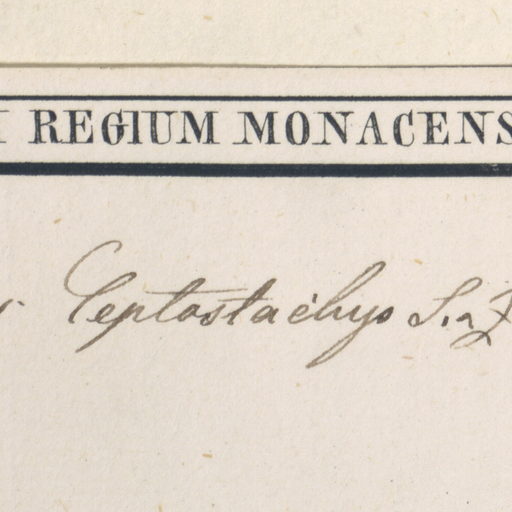 REGIUM MONACENS
Leptostachys